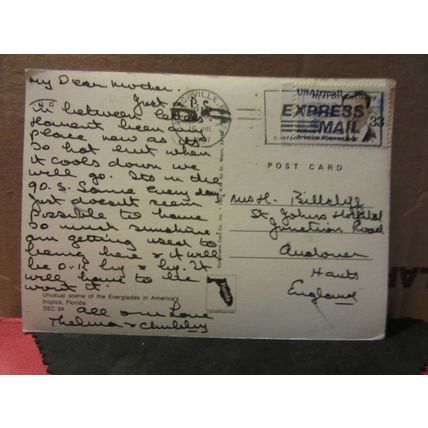 My Dear Mother.
Just a
in between letter
Havent been any
place now as its
so hot but when
it cools down we
will go. Its in the
90.s. Some every day
Just doesnt seem
possible to have
so much sunshine
am getting used to
being here & it will
be O.K by & by. It
will have to be
wont it.
Unusual scene of the Everglades in America's
tropics, Florida.
SEC 34
all our Love
Thelma &
USAirmail
EXPRESS
MAIL
33
POST CARD
Mrs H. Billcliff
St Johns Hospital
Junction Road
Andover
Hants
England